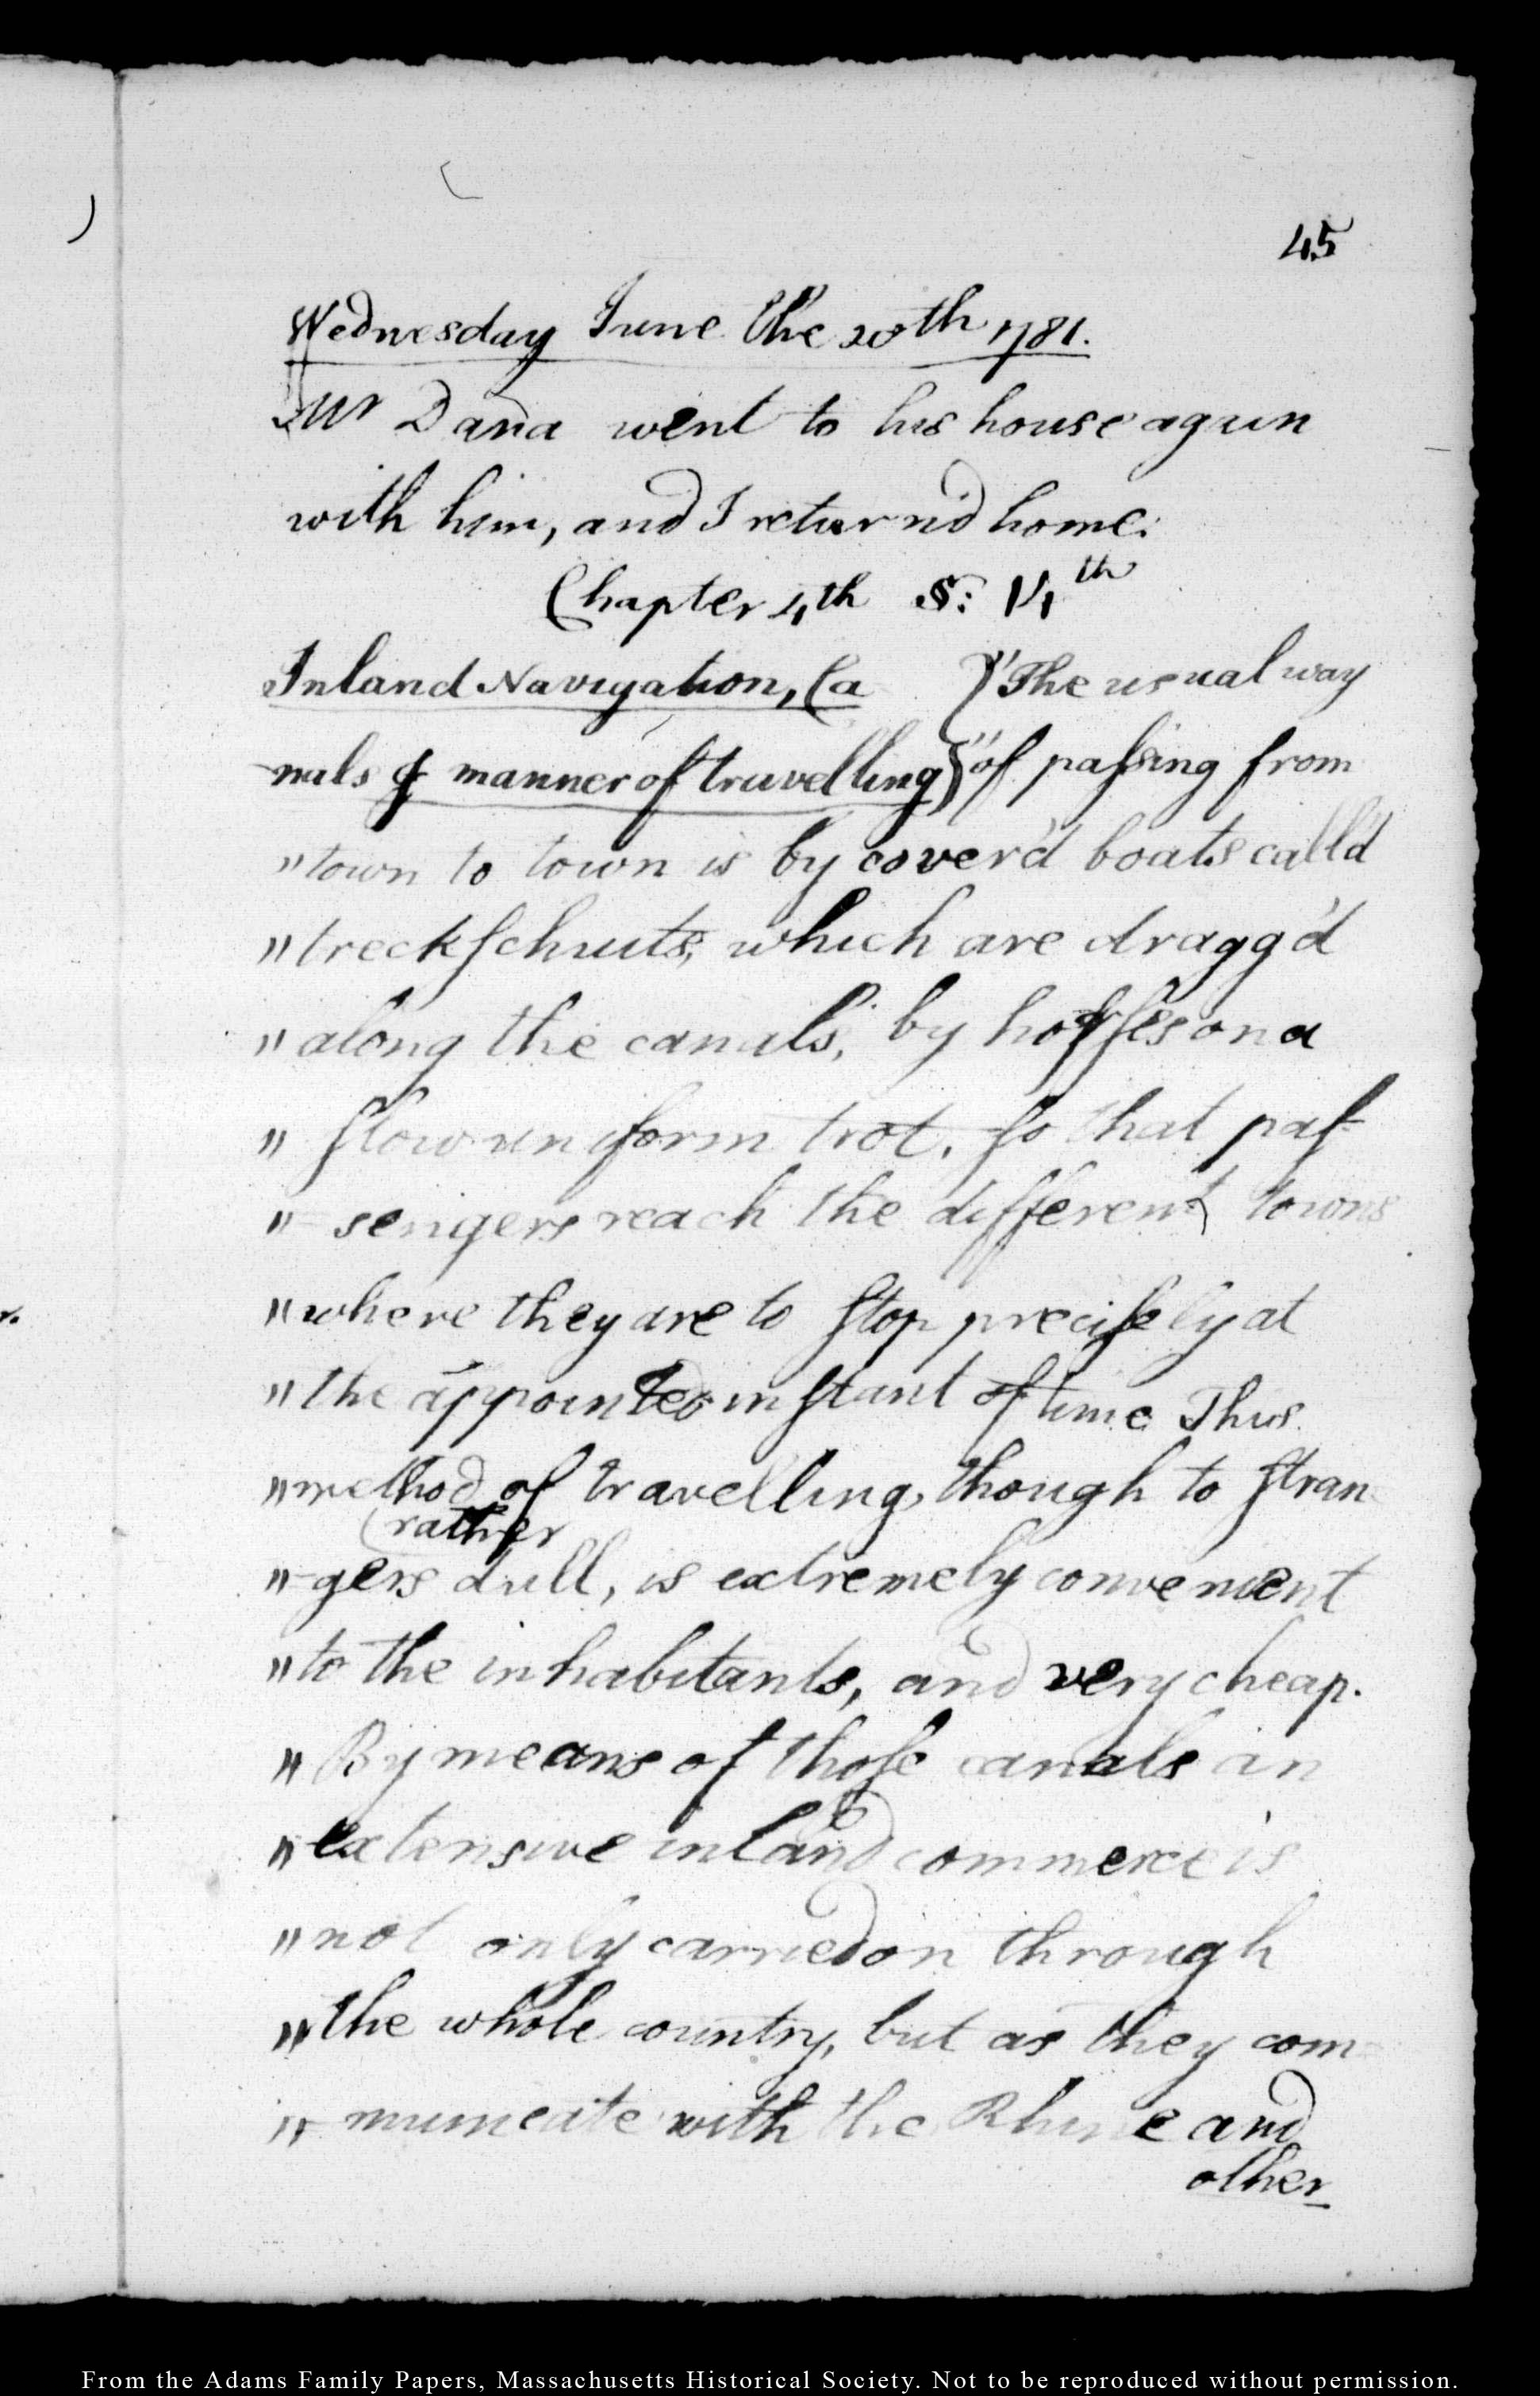 45
Wednesday June the 20th 1781.
Mr Dana went to his house again
with him, and I return'd home.
Chapter 4th S: 14th
Inland Navigation, Ca } "The usual way
nals & manner of travelling } "of passing from
"town to town is by cover'd boats call'd
"treckschuits, which are dragg'd
"along the canals, by horses on a
" slow uniform trot, so that pas
"- sengers reach the different towns
"where they are to stop precisely at
"the appointed instant of time This
"method of travelling, though to stran
rather
"-gers dull, is extremely convenient
"to the inhabitants, and very cheap.
"By means of those canals an
"extensive inland commerce is
"not only carried on through
"the whole country, but as they com-
"- municate with the Rhine and
other
From the Adams Family Papers, Massachusetts Historical Society. Not to be reproduced without permission.